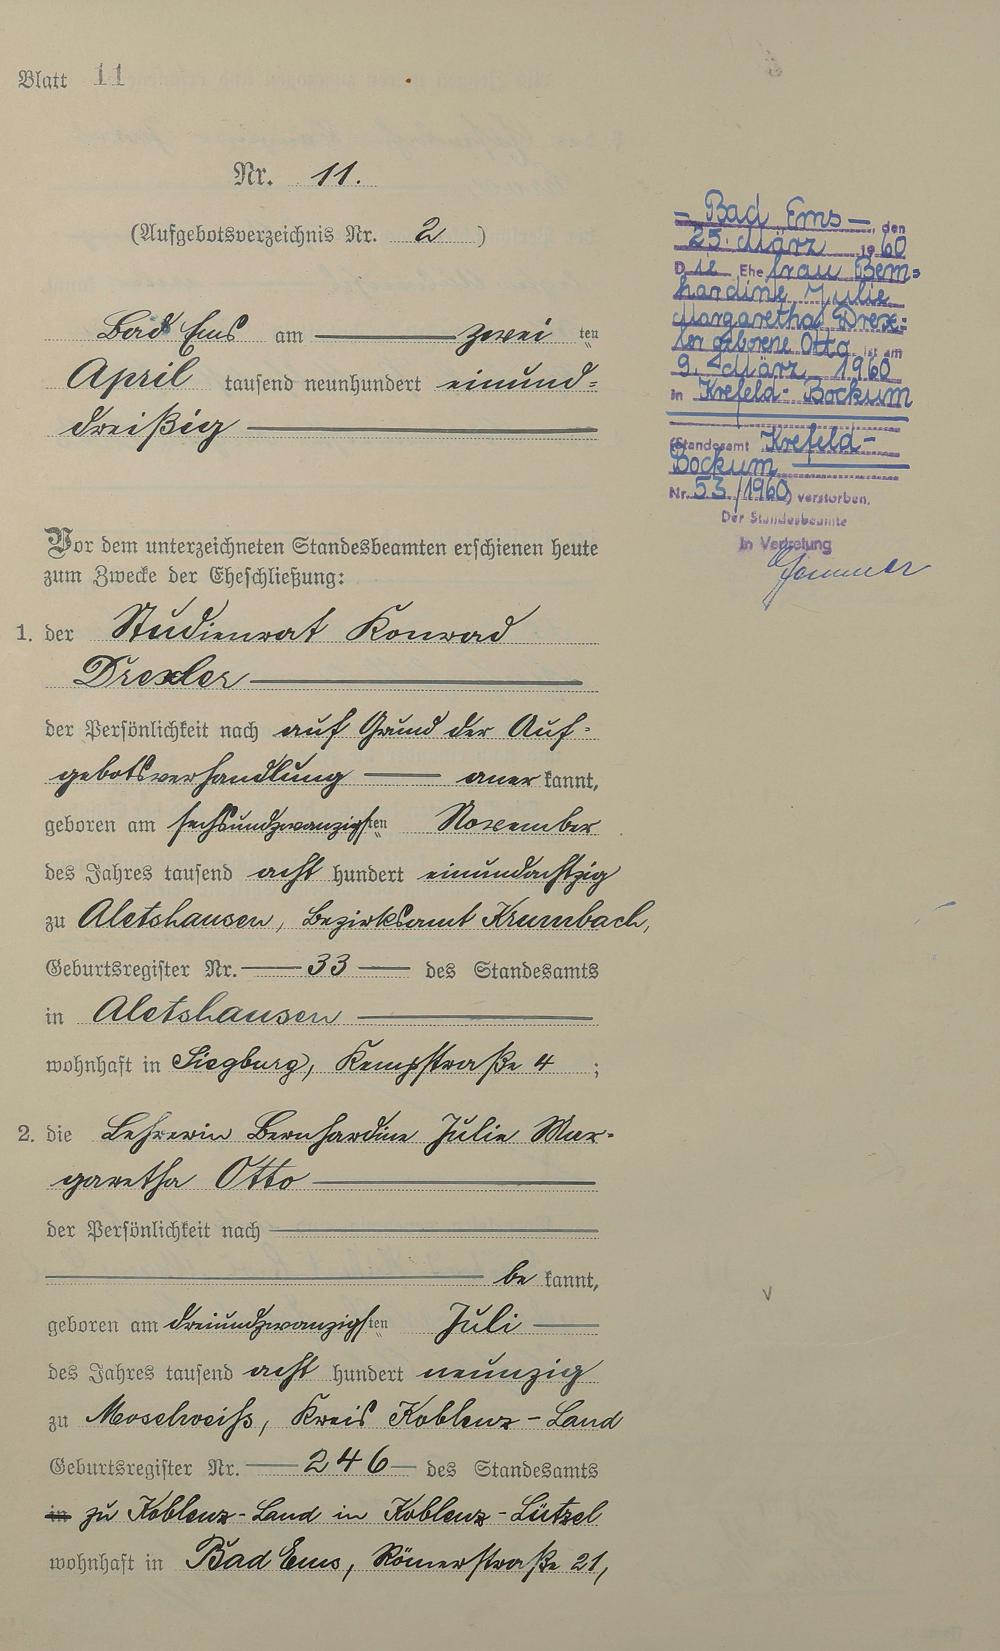 Blatt 11
Nr. 11.
(Aufgebotsverzeichnis Nr. 2)
Bad Ems am zwei ten
April tausend neunhundert einund=
dreißig
Vor dem unterzeichneten Standesbeamten erschienen heute
zum Zwecke der Eheschließung:
1. der Studienrat Konrad
Drexler
der Persönlichkeit nach auf Grund der Auf=
gebotsverhandlung anerkannt,
geboren am sechsundzwanzigsten November
des Jahres tausend acht hundert einundachtzig
zu Aletshausen, Bezirksamt Krumbach,
Geburtsregister Nr. 33 des Standesamts
in Aletshausen
wohnhaft in Siegburg, Kempstraße 4 ;
2. die Lehrerin Bernhardine Julie Mar=
garetha Otto
der Persönlichkeit nach
be kannt,
geboren am dreiundzwanzigsten Juli
des Jahres tausend acht hundert neunzig
zu Moselweiß, Kreis Koblenz-Land
Geburtsregister Nr. 246 des Standesamts
in zu Koblenz-Land in Koblenz-Lützel
wohnhaft in Bad Ems, Römerstraße 21,
Bad Ems, den
25. März 1960
Die Ehefrau Bern=
hardine Julie
Margaretha Drex=
ler geborene Otto ist am
9. März 1960
in Krefeld-Bockum
(Standesamt Krefeld-
Bockum
Nr. 53/1960) verstorben.
Der Standesbeamte
In Vertretung